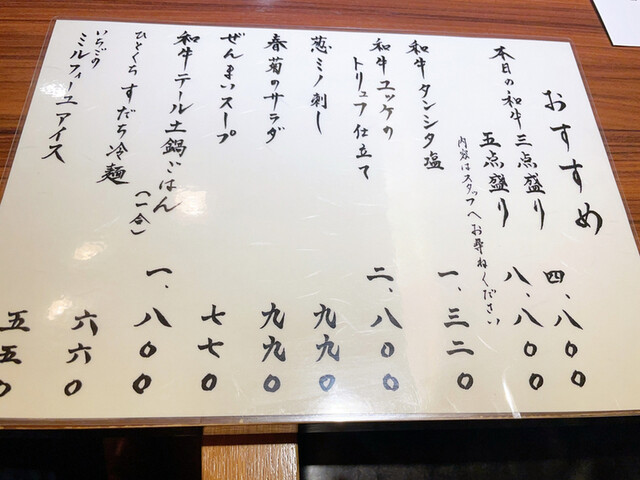 おすすめ
本日の和牛三点盛り 四、八〇〇
五点盛り 八、八〇〇
内容はスタッフへお尋ねください
和牛タンシタ塩 一、三二〇
和牛ユッケの
トリュフ仕立て 二、八〇〇
葱ミノ刺し 九九〇
春菊のサラダ 九九〇
ぜんまいスープ 七七〇
和牛テール土鍋ごはん(一合) 一、八〇〇
ひとくちすだち冷麺 六六〇
いちごの
ミルフィーユアイス 五五〇